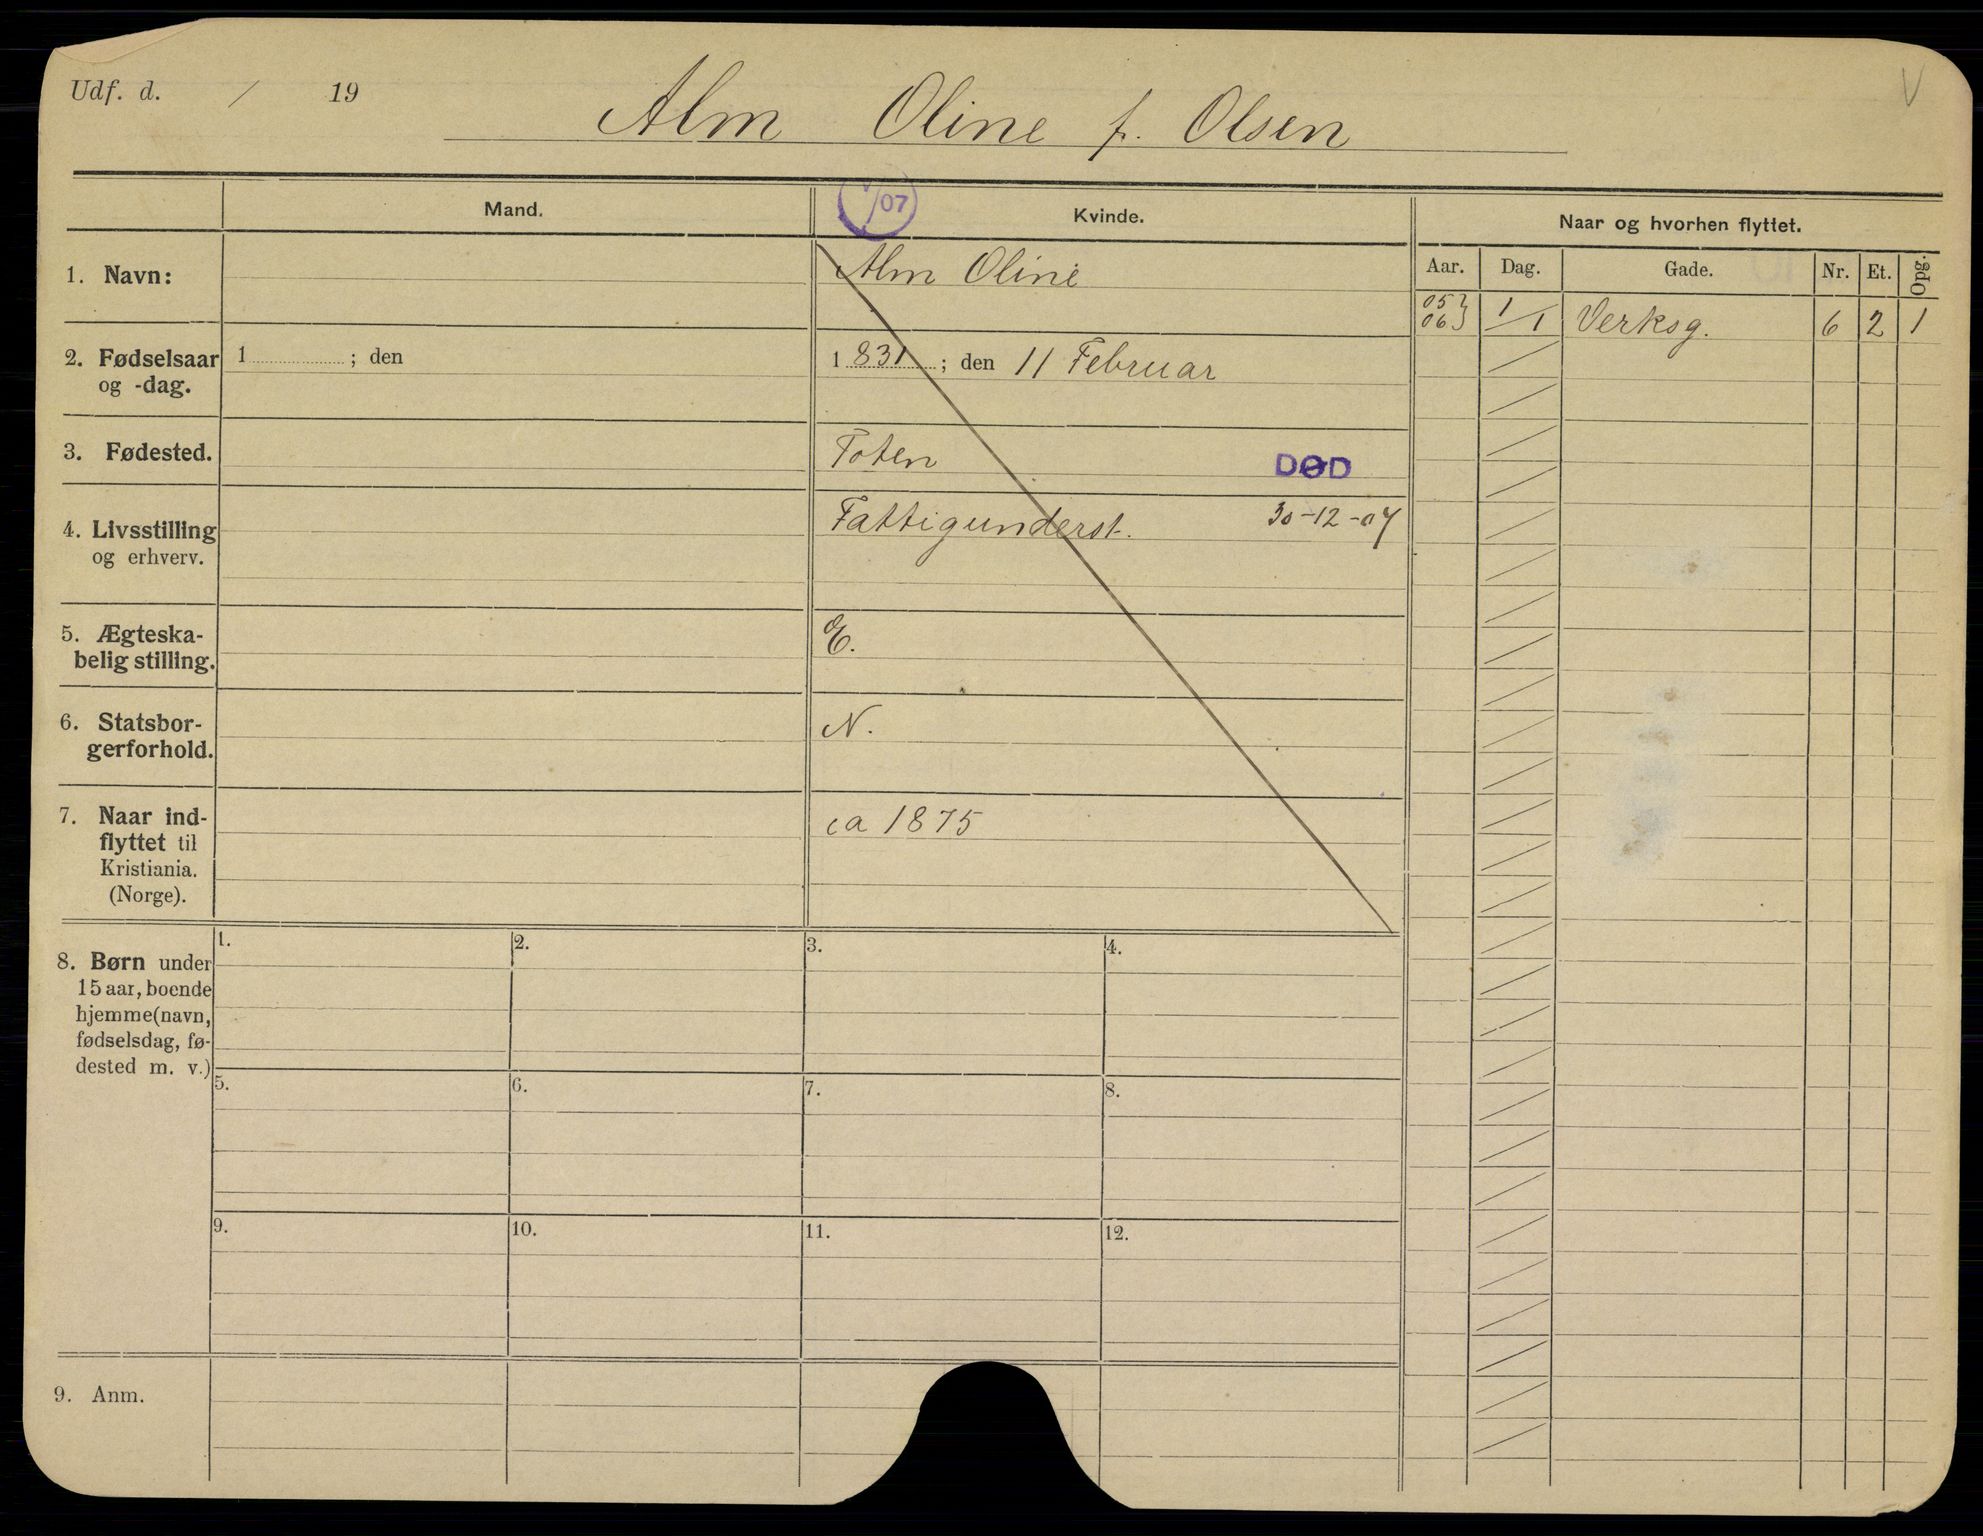 Udf. d. / 19
Alm Oline f. Olsen
V
Mand.
/07
Kvinde.
Naar og hvorhen flyttet.
Aar. Dag. Gade. Nr. Et. Opg.
05 } 1/1 Verksg. 6 2 1
06 }
1. Navn:
Alm Oline
2. Fødselsaar
og -dag.
1 ; den
1 831 ; den 11 Februar
3. Fødested.
Toten
DØD
4. Livsstilling
og erhverv.
Fattigunderst.
30-12-07
5. Ægteska-
belig stilling.
E.
6. Statsbor-
gerforhold.
N.
7. Naar ind-
flyttet til
Kristiania.
(Norge).
ca 1875
8. Børn under
15 aar, boende
hjemme (navn,
fødselsdag, fø-
dested m. v.)
1. 2. 3. 4.
5. 6. 7. 8.
9. 10. 11. 12.
9. Anm.